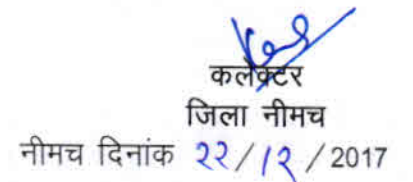 कलेक्टर
जिला नीमच
नीमच दिनांक २२/१२/2017